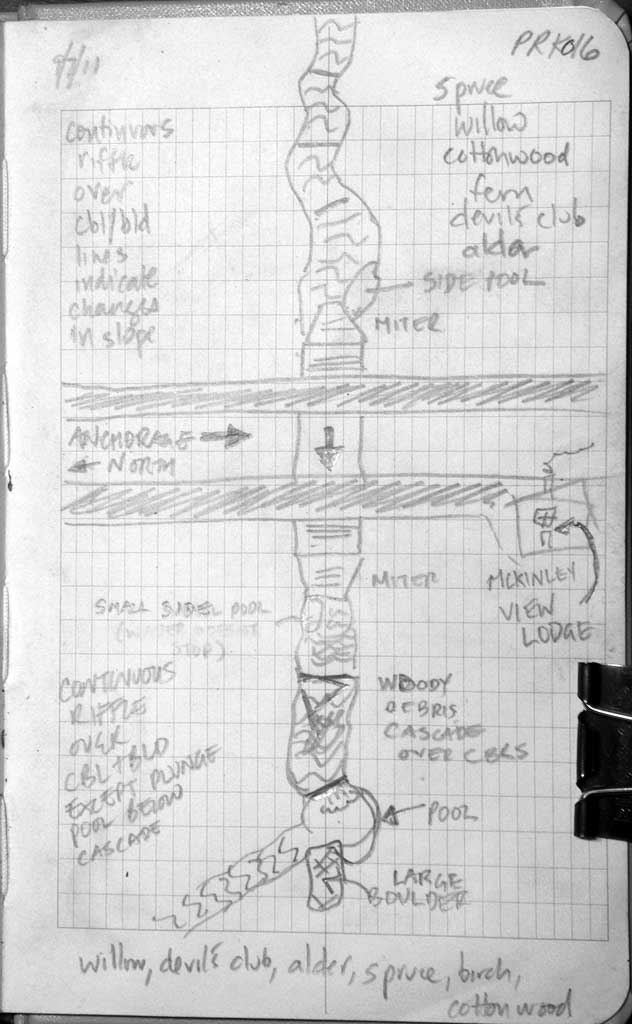 PRK016
continuous
riffle
over
cbl/bld
lines
indicate
changes
in slope
spruce
willow
cottonwood
fern
devil's club
alder
SIDE POOL
MITER
ANCHORAGE →
← NORTH
MCKINLEY
VIEW
LODGE
MITER
SMALL POOL
STOP)
CONTINUOUS
RIFFLE
OVER
CBL + BLD
EXCEPT PLUNGE
POOL BELOW
CASCADE
WOODY
DEBRIS
CASCADE
OVER CBLS
POOL
LARGE
BOULDER
willow, devil's club, alder, spruce, birch,
cottonwood